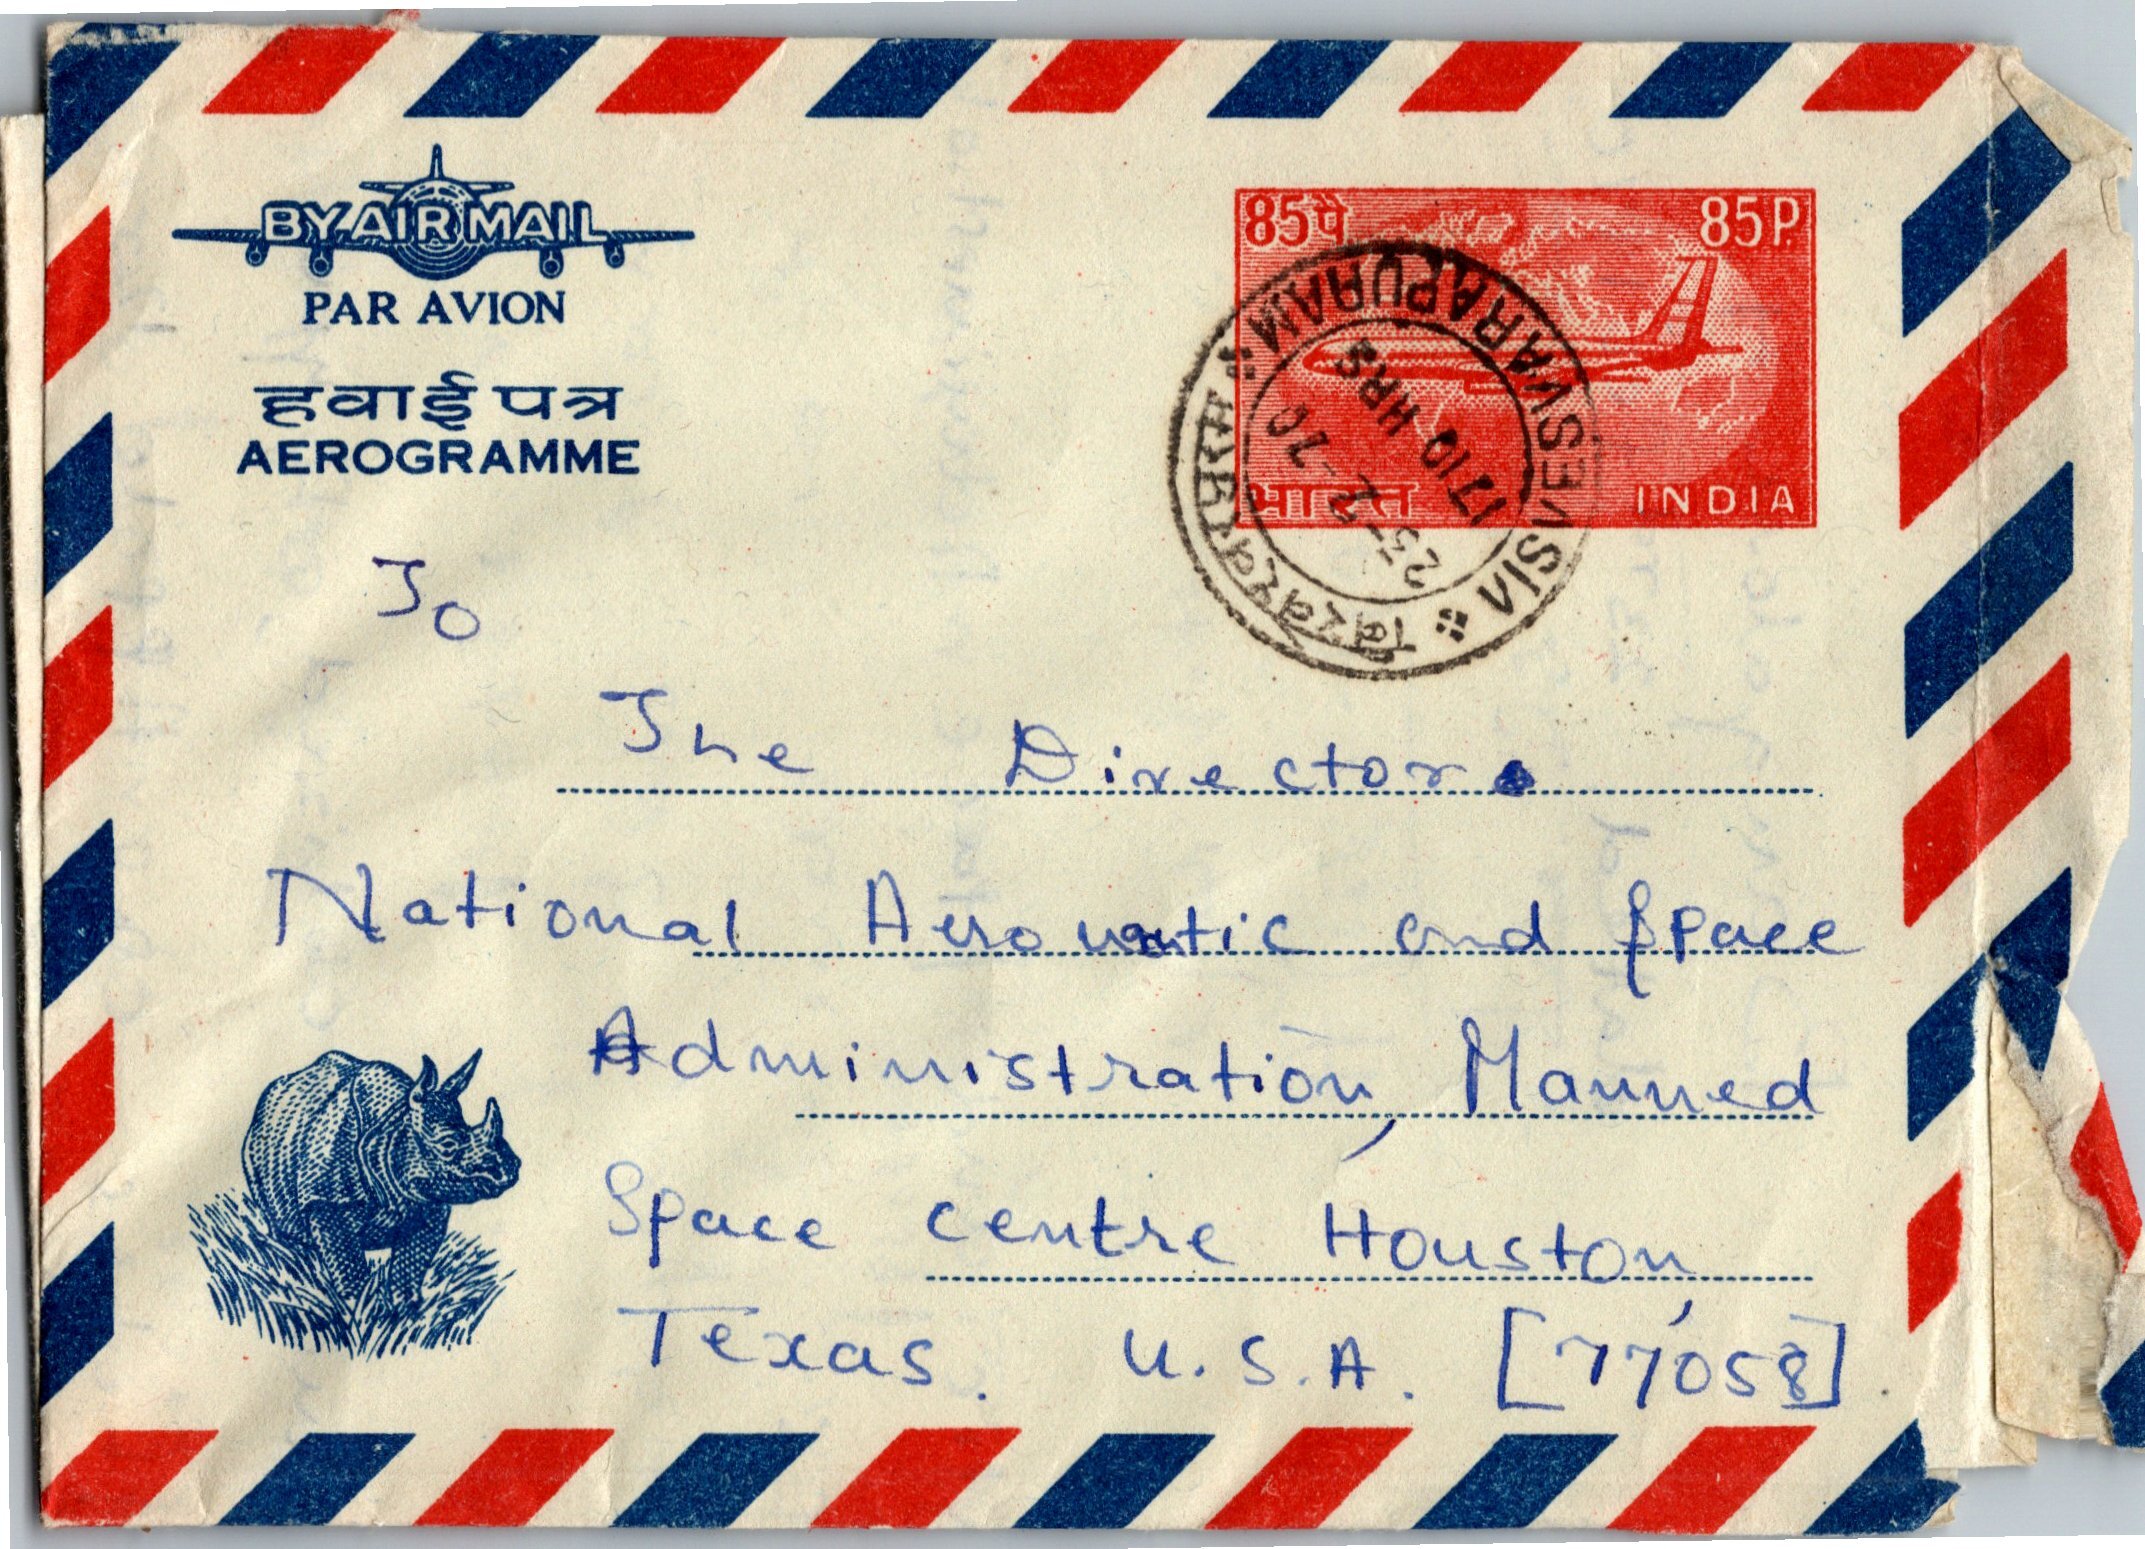 BY AIR MAIL
PAR AVION
हवाई पत्र
AEROGRAMME
85 पै
85 P.
भारत
INDIA
VISVESWARAPURAM
23-2-70
1710 HRS
To
The Director
National Aeronautic and Space
Administration, Manned
Space Centre Houston,
Texas. U.S.A. [77058].